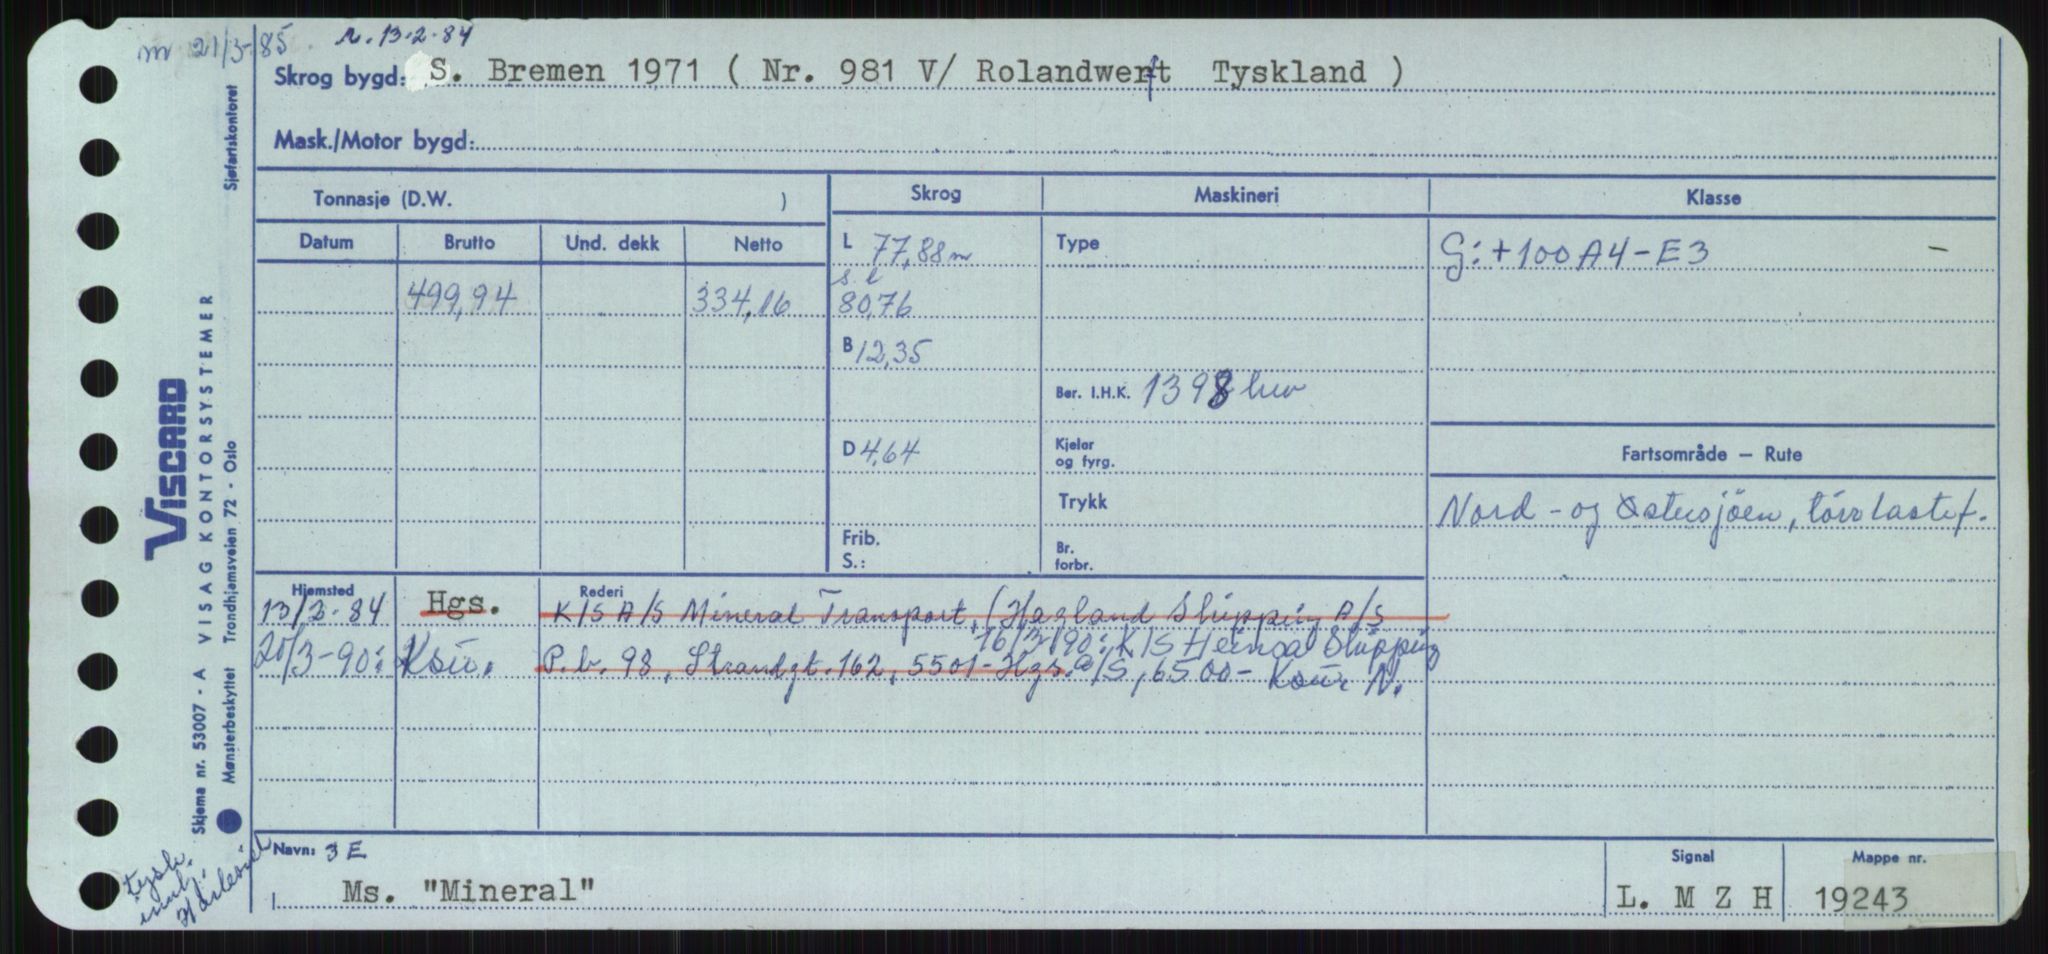 m 21/3-85. r. 13-2-84
Skrog bygd: S. Bremen 1971 ( Nr. 981 V/ Rolandwerft Tyskland )
Mask./Motor bygd:
Tonnasje (D.W. )
Skrog
Maskineri
Klasse
Datum
Brutto
Und. dekk
Netto
L 77,88 m
Type
G: + 100 A4 - E3 -
s. l
499,94
334,16
80,76
B 12,35
Ber. I.H.K. 1398 hk
D 4,64
Kjeler
og fyrg.
Fartsområde — Rute
Trykk
Nord - og Østersjöen, törrlastef.
Frib.
S.:
Br.
forbr.
Hjemsted
Rederi
13/2-84 Hgs. K/S A/S Mineral Transport, (Hagland Shipping A/S
16/3/90: K/S Heinsa Shipping
20/3-90: Ksu. P.b. 98, Strandgt. 162, 5501 - Hgs. A/S, 6500 - Ksu N.
Navn: 3 E
Ms. "Mineral"
Signal
L. M Z H
Mappe nr.
19243
Sjøfartskontoret
VISCARD
Skjema nr. 53007 - A VISAG KONTORSYSTEMER
Mønsterbeskyttet Trondhjemsveien 72 - Oslo
tysk.
innkj.